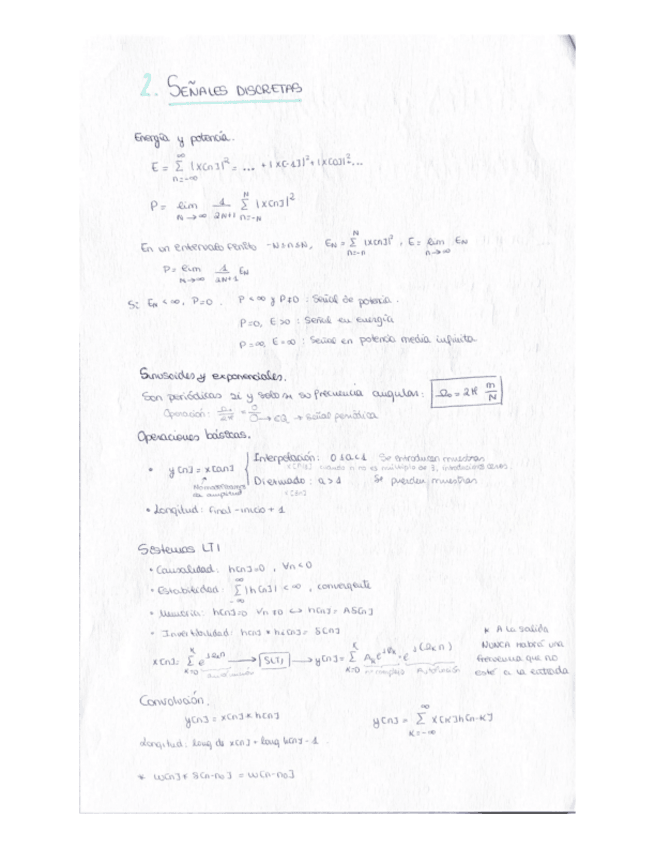 2. SEÑALES DISCRETAS
Energía y potencia.
E = Σ_{n=-∞}^{∞} |x[n]|² = ... + |x[-1]|² + |x[0]|² ...
P = lim_{N→∞} 1/(2N+1) Σ_{n=-N}^{N} |x[n]|²
En un intervalo finito -N≤n≤N, E_N = Σ_{n=-n}^{N} |x[n]|², E = lim_{n→∞} E_N
P = lim_{N→∞} 1/(2N+1) E_N
Si E_N < ∞, P=0. P<∞ y P≠0 : Señal de potencia.
P=0, E>0 : Señal en energía
P=∞, E=∞ : Señal en potencia media infinita
Sinusoides y exponenciales.
Son periódicas si y solo si su frecuencia angular: Ω₀ = 2π m/N
Operación: Ω₀/2π → señal periódica
Operaciones básicas.
• y[n] = x[an] Interpolación: 0<a<1 Se introducen muestras
Diezmado: a>1 Se pierden muestras
• Longitud: final - inicio + 1
Sistemas LTI
• Causalidad: h[n]=0, ∀n<0
• Estabilidad: Σ_{-∞}^{∞} |h[n]| < ∞, convergente
• Memoria: h[n]=0 ∀n≠0 ↔ h[n] = Aδ[n]
• Invertibilidad: h[n] * h_i[n] = δ[n]
x[n] = Σ_{k=0}^{K} e^{jΩ_k n} → SLTI → y[n] = Σ_{k=0}^{K} A_k e^{jθ_k} · e^{j(Ω_k n)}
autofunción nº complejo Autofunción
* A la salida
NUNCA habrá una
frecuencia que no
esté a la entrada
Convolución.
y[n] = x[n] * h[n] y[n] = Σ_{k=-∞}^{∞} x[k]h[n-k]
Longitud: long de x[n] + long h[n] - 1
* w[n] * δ[n-n₀] = w[n-n₀]